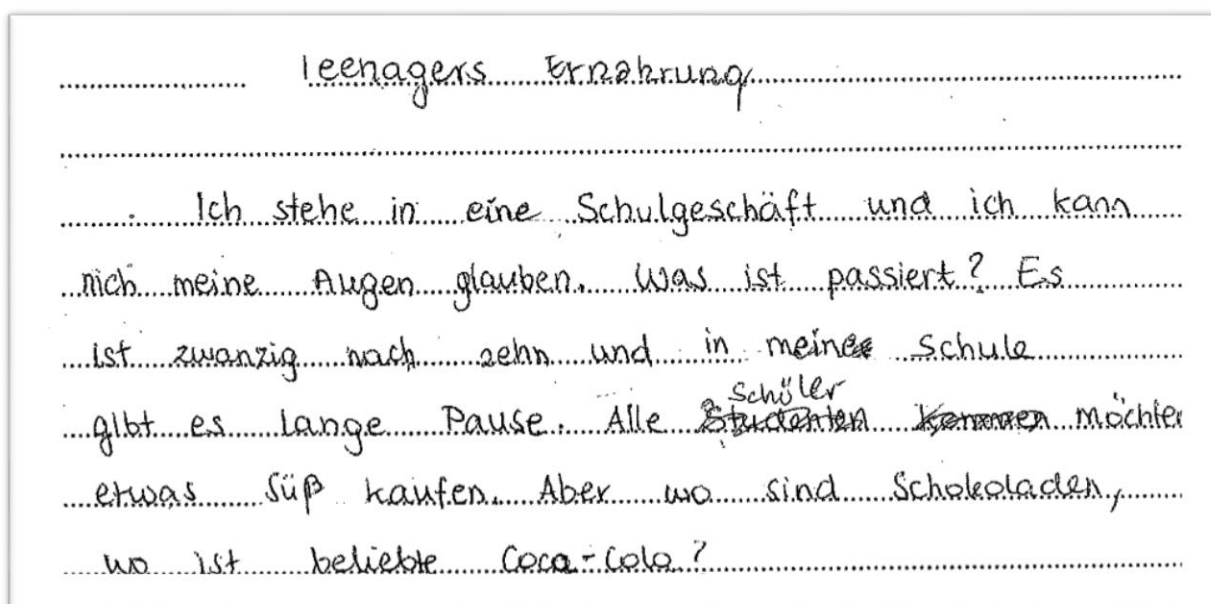 Teenagers Ernahrung
Ich stehe in eine Schulgeschäft und ich kann
nich meine Augen glauben. Was ist passiert? Es
ist zwanzig nach zehn und in meine Schule
gibt es lange Pause. Alle Schüler möchten
etwas süß kaufen. Aber wo sind Schokoladen,
wo ist beliebte Coca-Cola?